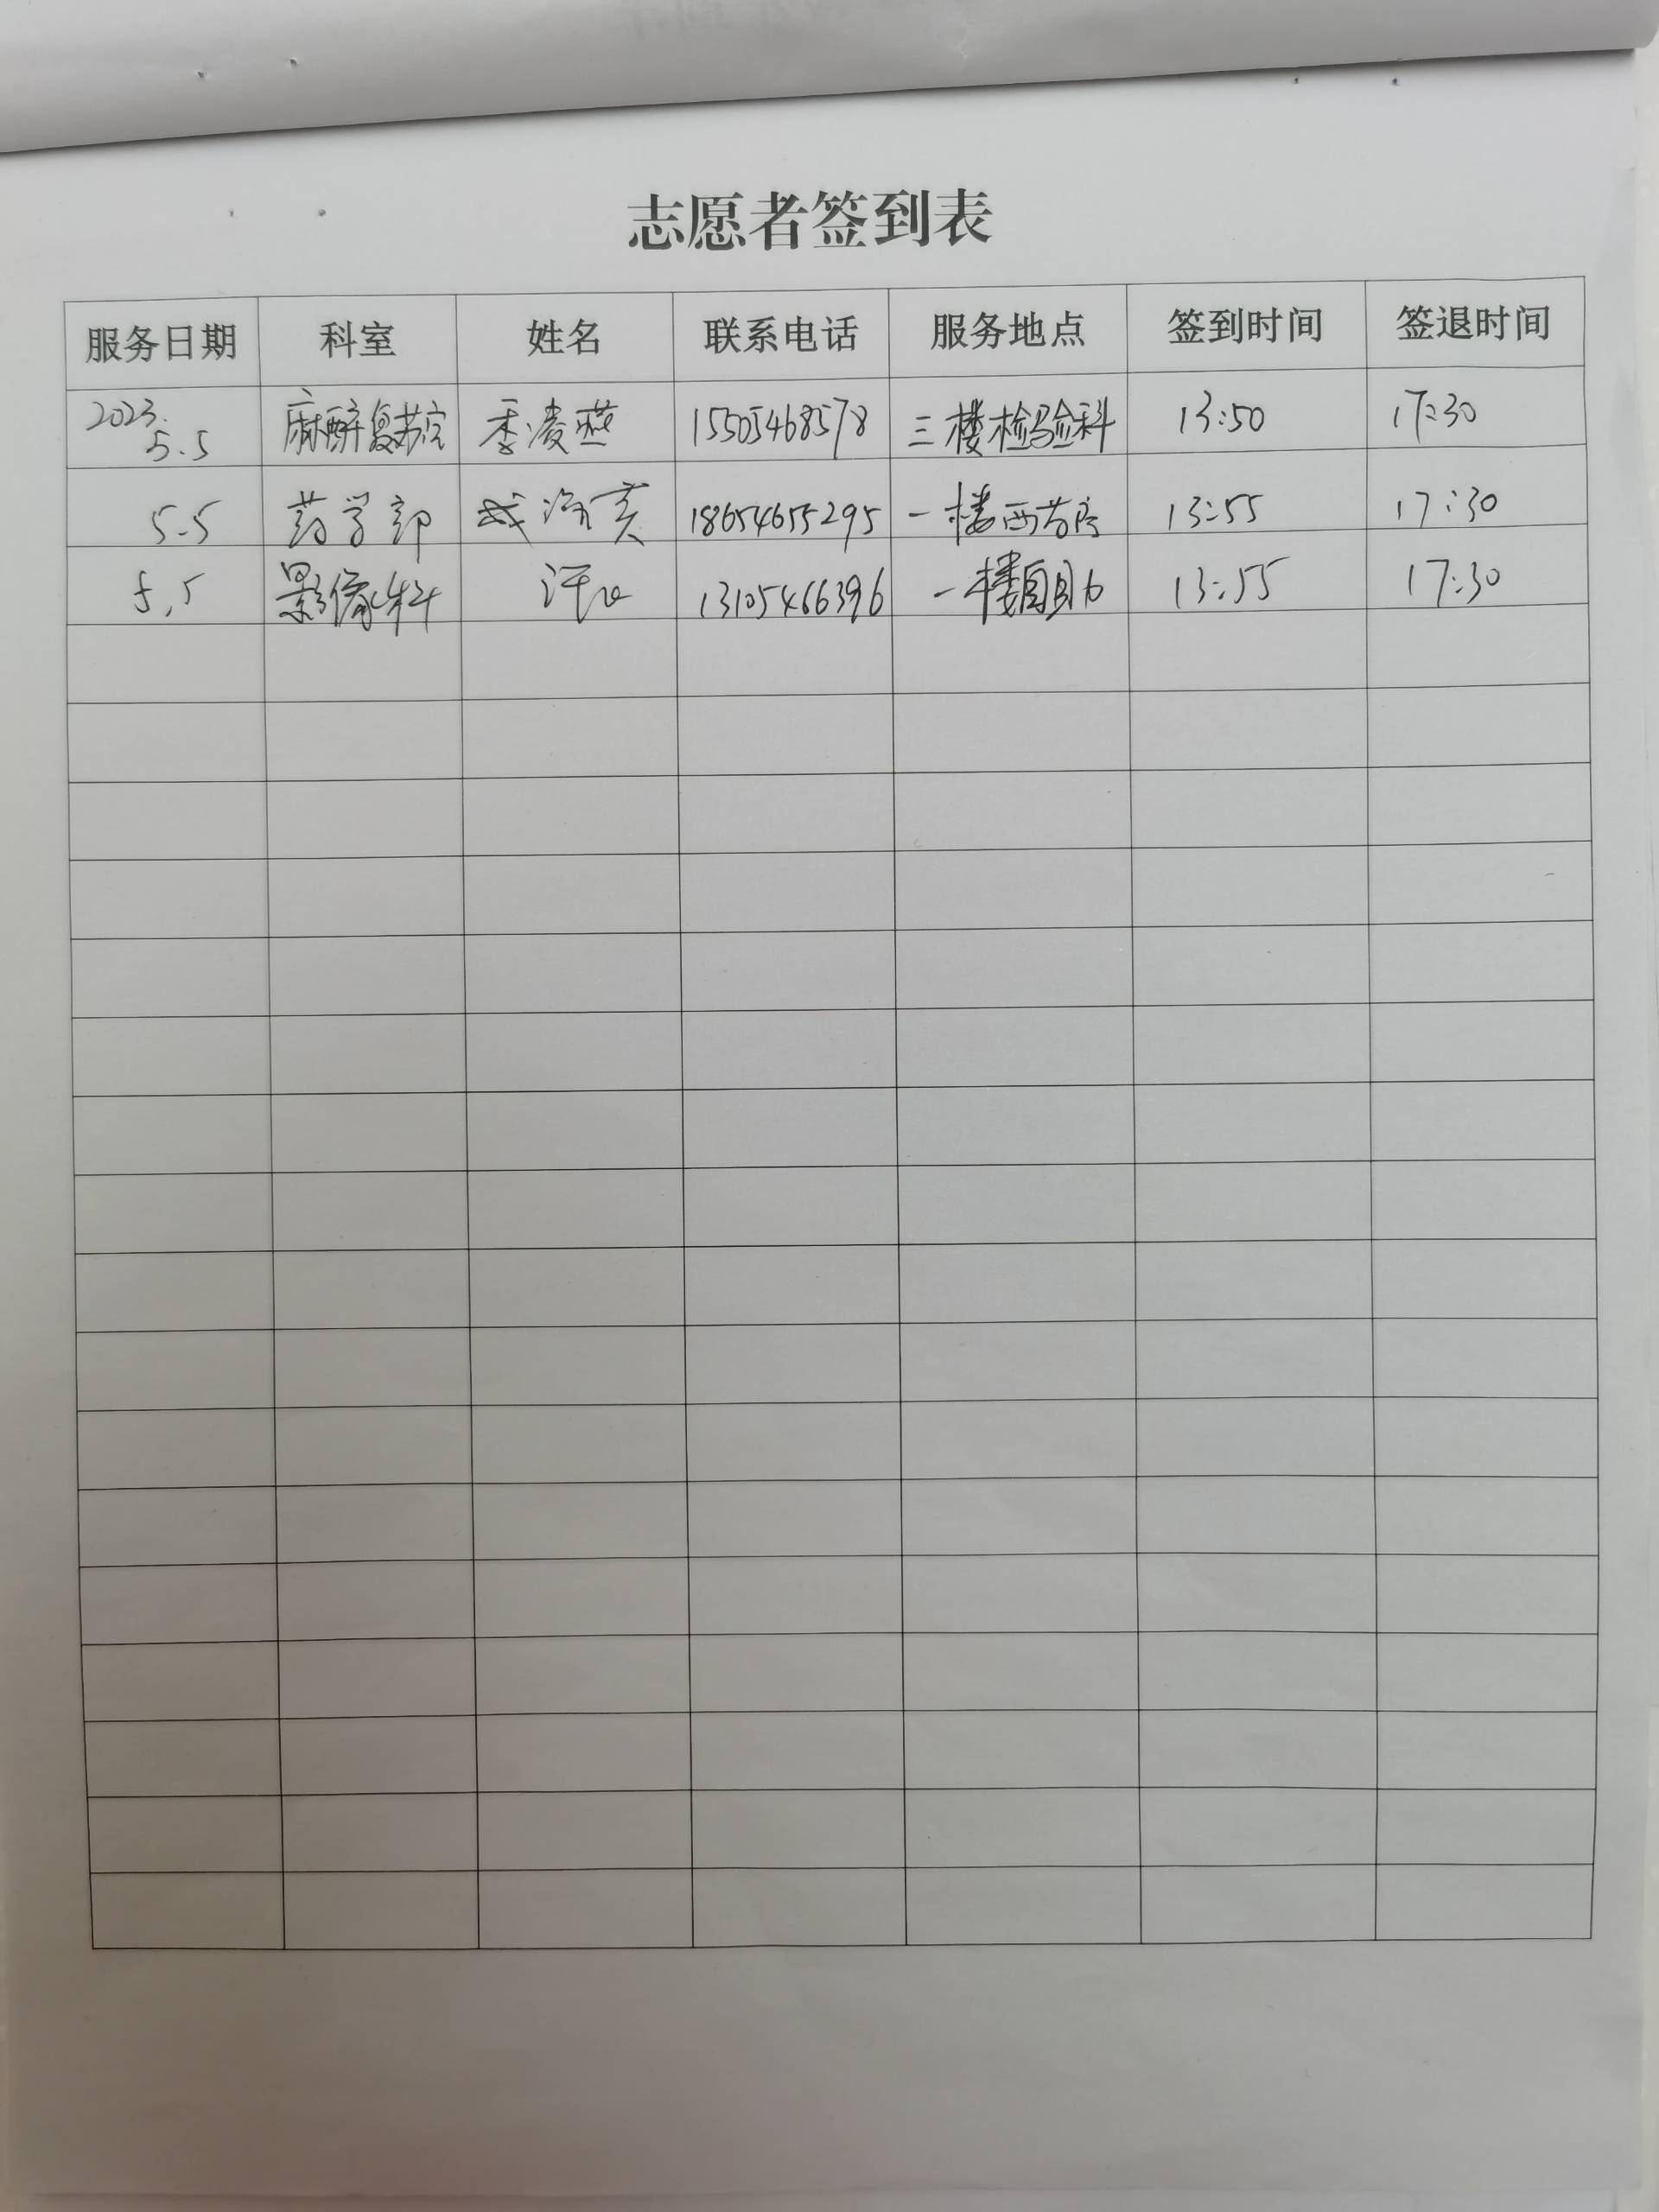 志愿者签到表
服务日期 科室 姓名 联系电话 服务地点 签到时间 签退时间
2023.
5.5 麻醉复苏室 季凌燕 15505468578 三楼检验科 13:50 17:30
5.5 药学部 18654655295 一楼西药房 13:55 17:30
5.5 影像科 13105466396 一楼自助 13:55 17:30